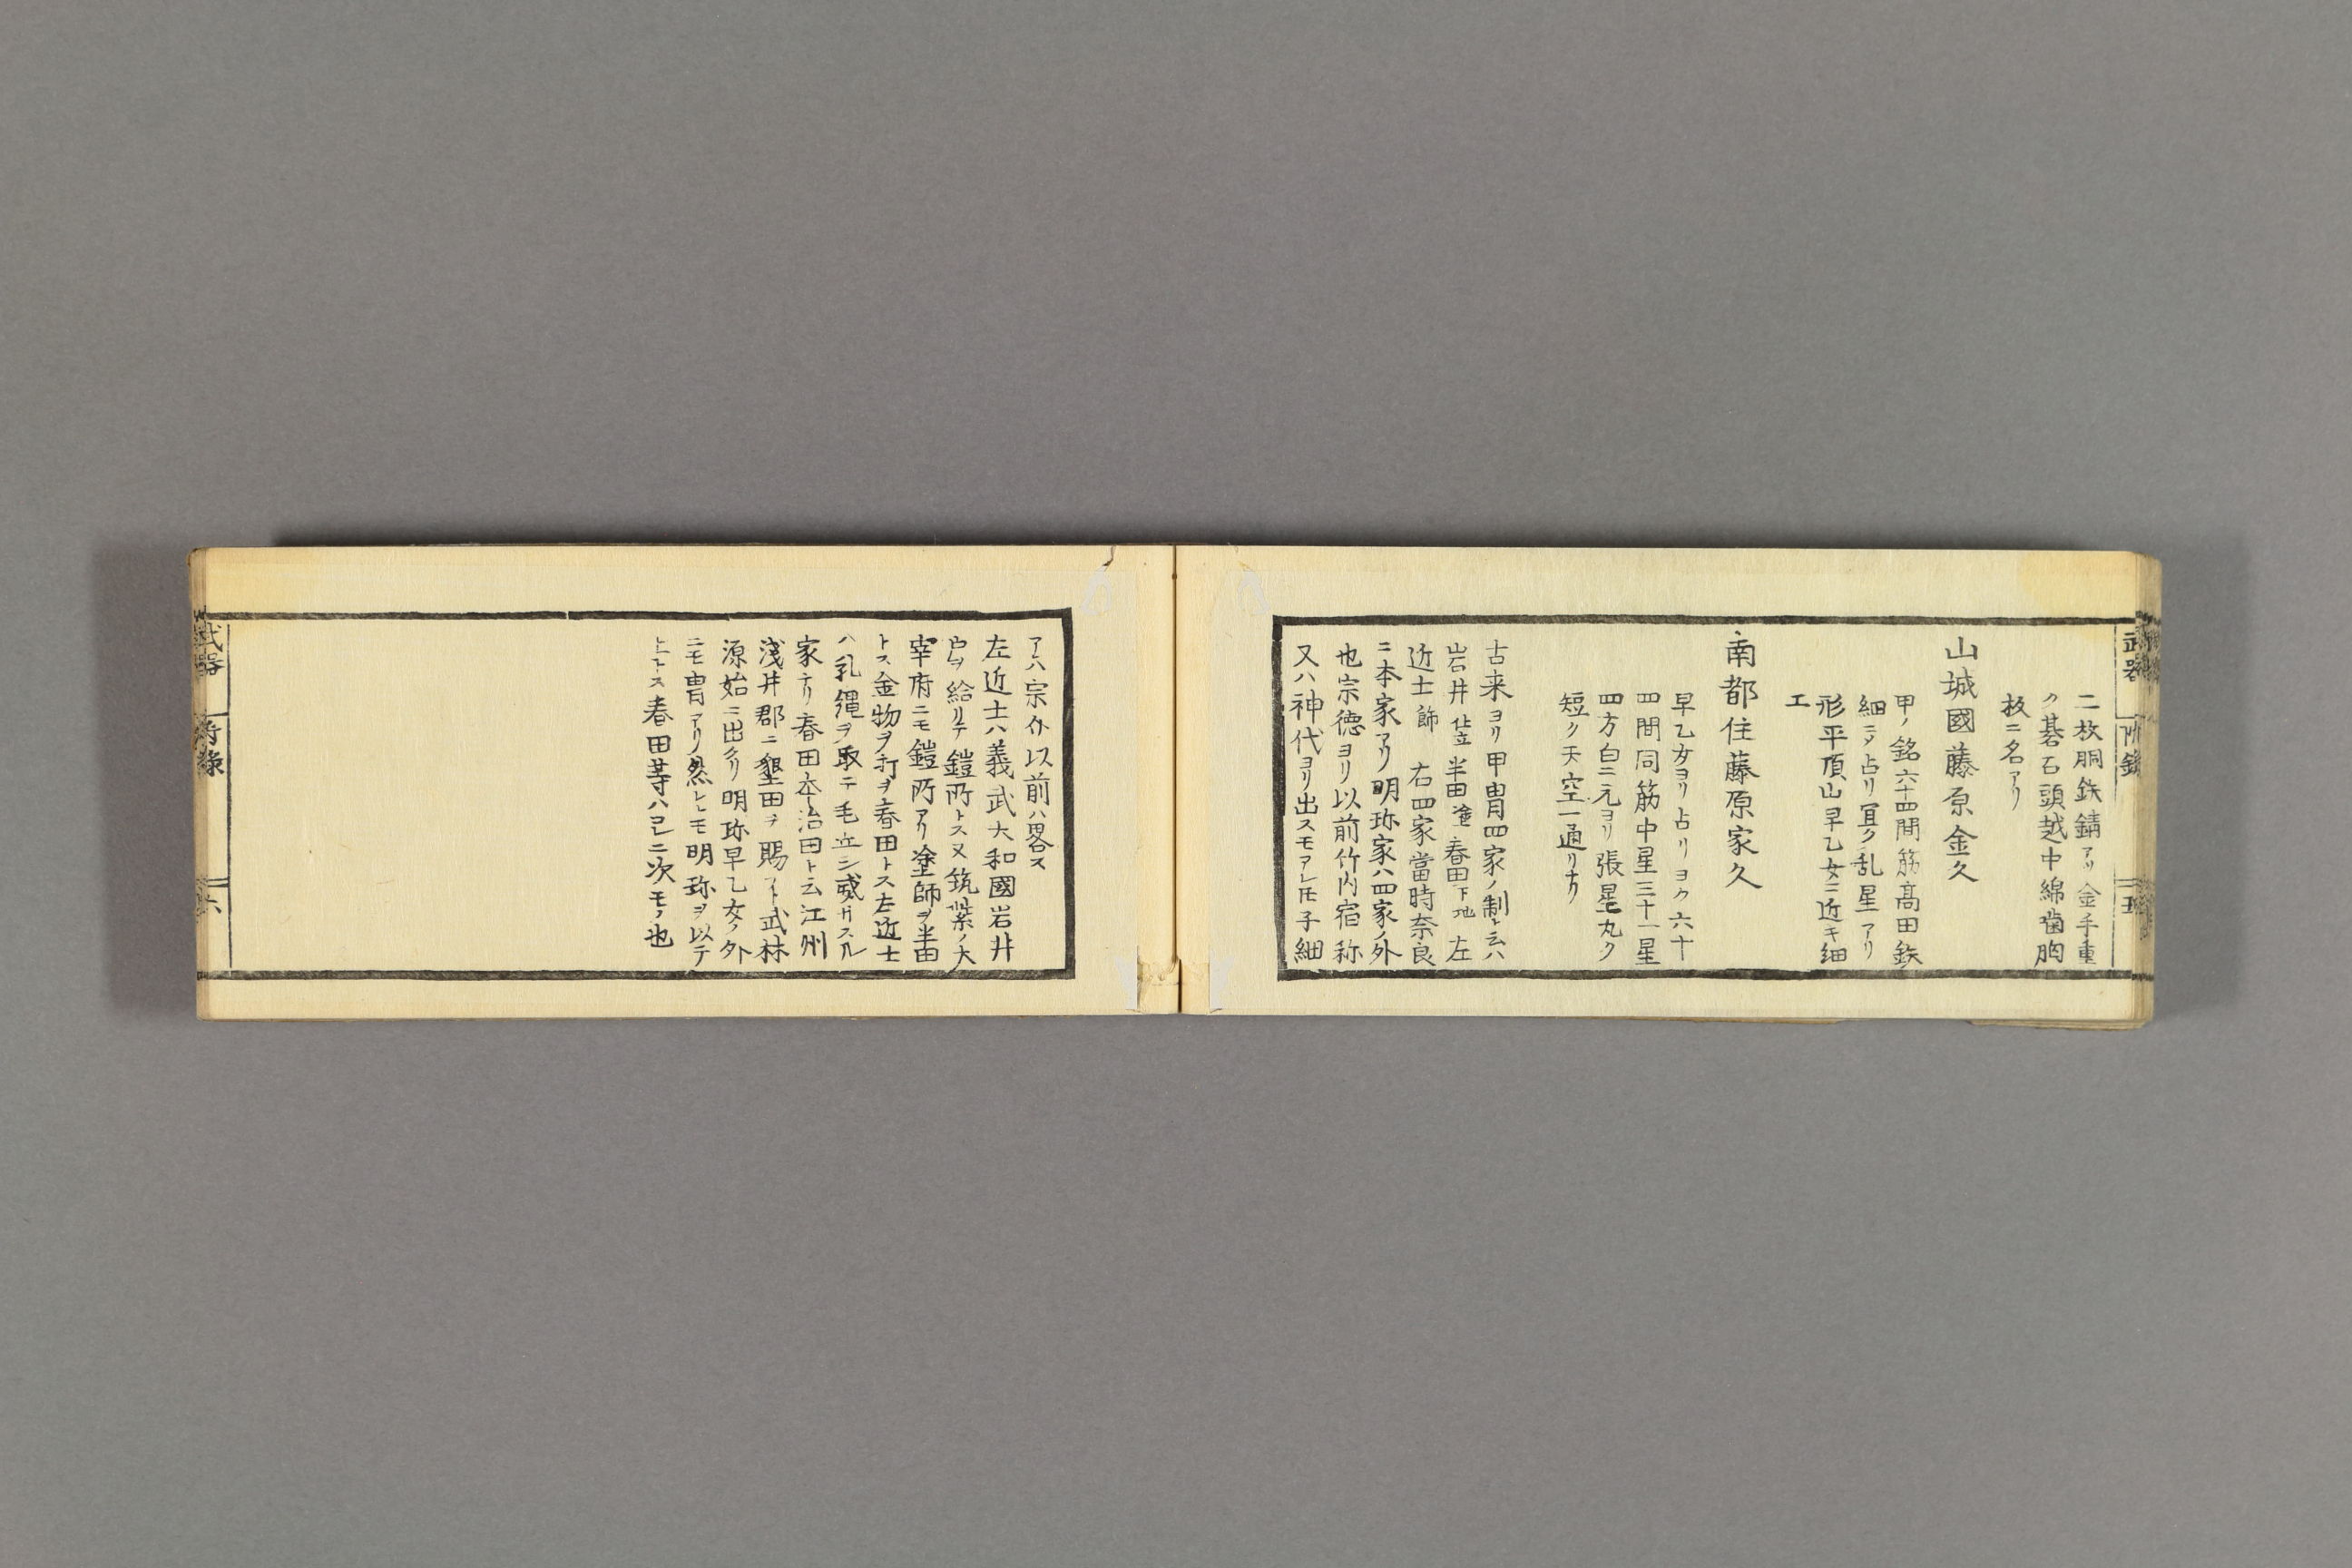 武器 附錄 五
二枚胴鉄錆アリ金手重
ク碁石頭越中綿噛胸
板ニ名アリ
山城國藤原金久
甲ノ銘六十四間筋髙田鉄
細ニノ占リ冝ク乱星アリ
形平頂山早乙女ニ近キ細
工
南都住藤原家久
早乙女ヨリ占リヨク六十
四間同筋中星三十一星
四方白ニ元ヨリ張星丸ク
短ク天空一通リナリ
古来ヨリ甲冑四家ノ制ト云ハ
岩井 仕立 半田 塗 春田 下地 左
近士 餝 右四家當時奈良
ニ本家アリ明珎家ハ四家ノ外
也宗徳ヨリ以前竹内宿称
又ハ神代ヨリ出スモアレ𪜈子細
アハ宗介以前ハ畧ス
左近士ハ義武大和國岩井
戸ヲ給リテ鎧所トス又筑紫ノ大
宰府ニモ鎧所アリ塗師ヲ半田
トス金物ヲ打ヲ春田トス左近士
ハ乳縄ヲ取ニテ毛立シ威サスル
家ナリ春田本治田ト云江州
淺井郡ニ墾田ヲ賜フト武林
源始ニ出タリ明珎早乙女ノ外
ニモ冑アリ然レ𪜈モ明珎ヲ以テ
上トス春田等ハコレニ次モノ也
武器 附錄 六